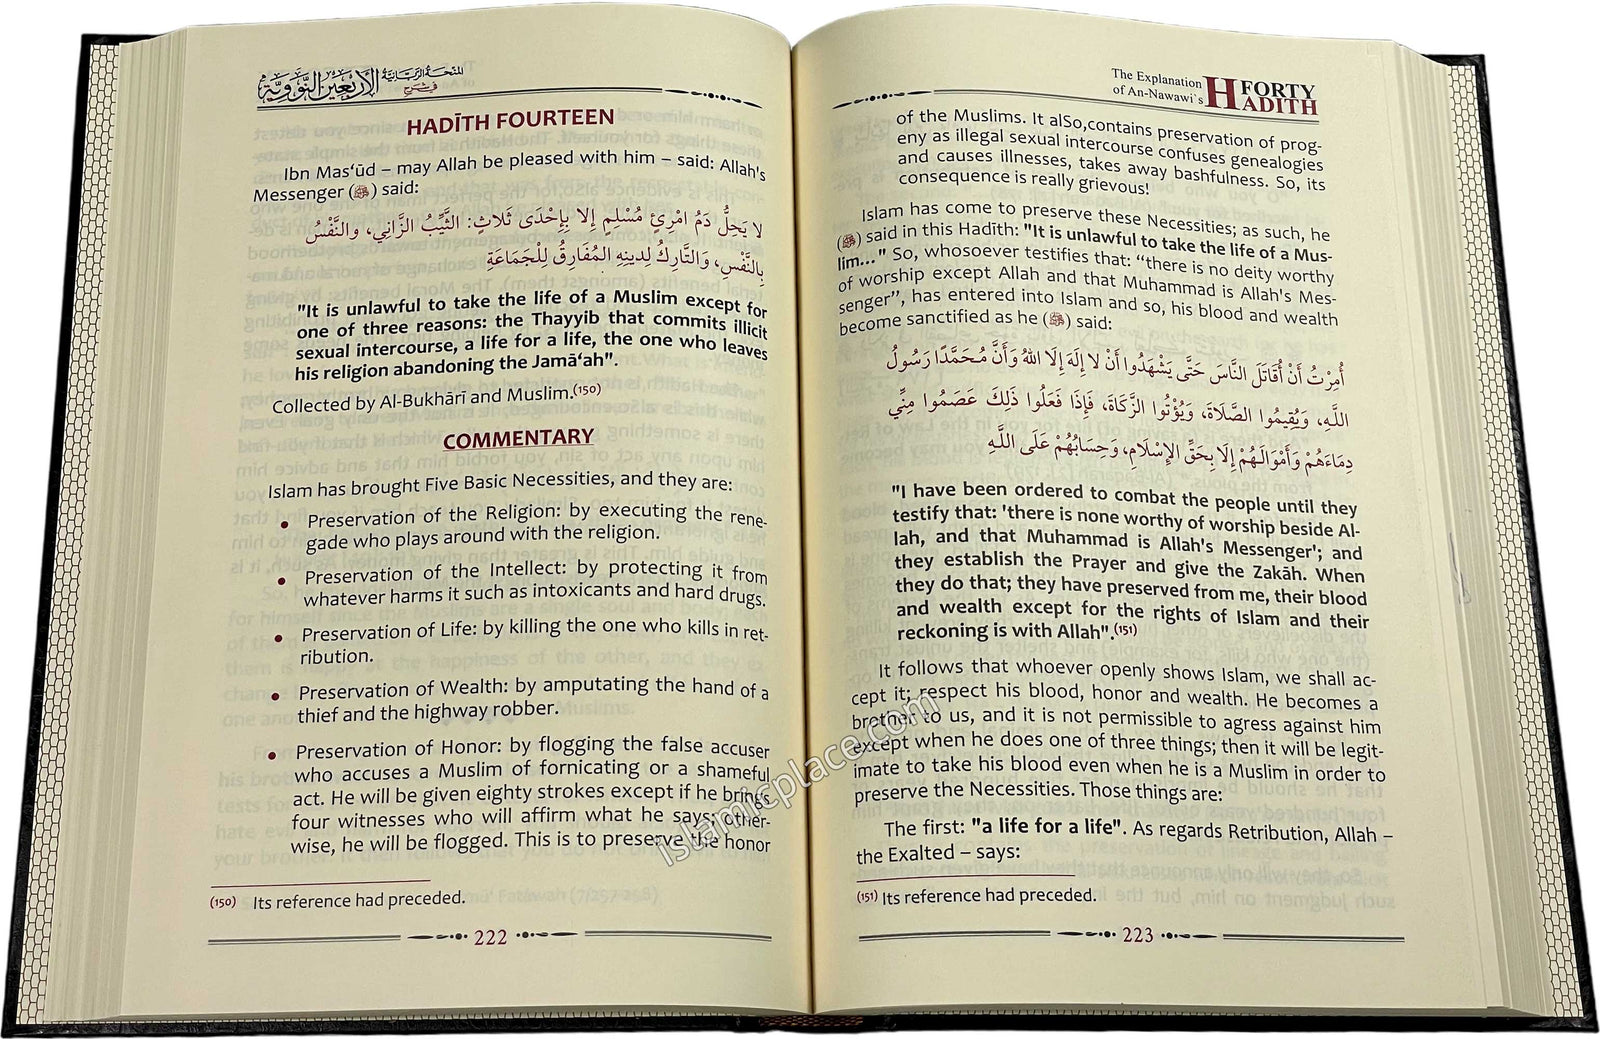 المنحة الربانية
في شرح
الأربعين النووية
HADĪTH FOURTEEN
Ibn Mas‘ūd – may Allah be pleased with him – said: Allah's
Messenger (ﷺ) said:
لا يَحِلُّ دَمُ امْرِئٍ مُسْلِمٍ إلا بِإِحْدَى ثَلاثٍ: الثَّيِّبُ الزَّانِي، والنَّفْسُ
بِالنَّفْسِ، وَالتَّارِكُ لِدِينِهِ المُفَارِقُ لِلْجَمَاعَةِ
"It is unlawful to take the life of a Muslim except for
one of three reasons: the Thayyib that commits illicit
sexual intercourse, a life for a life, the one who leaves
his religion abandoning the Jamā‘ah".
Collected by Al-Bukhārī and Muslim.(150)
COMMENTARY
Islam has brought Five Basic Necessities, and they are:
• Preservation of the Religion: by executing the rene-
gade who plays around with the religion.
• Preservation of the Intellect: by protecting it from
whatever harms it such as intoxicants and hard drugs.
• Preservation of Life: by killing the one who kills in ret-
ribution.
• Preservation of Wealth: by amputating the hand of a
thief and the highway robber.
• Preservation of Honor: by flogging the false accuser
who accuses a Muslim of fornicating or a shameful
act. He will be given eighty strokes except if he brings
four witnesses who will affirm what he says; other-
wise, he will be flogged. This is to preserve the honor
(150) Its reference had preceded.
222
The Explanation
of An-Nawawi`s
FORTY
HADITH
of the Muslims. It alSo,contains preservation of prog-
eny as illegal sexual intercourse confuses genealogies
and causes illnesses, takes away bashfulness. So, its
consequence is really grievous!
Islam has come to preserve these Necessities; as such, he
(ﷺ) said in this Hadith: "It is unlawful to take the life of a Mus-
lim..." So, whosoever testifies that: “there is no deity worthy
of worship except Allah and that Muhammad is Allah's Mes-
senger”, has entered into Islam and so, his blood and wealth
become sanctified as he (ﷺ) said:
أُمِرْتُ أَنْ أُقَاتَلَ النَّاسَ حَتَّى يَشْهَدُوا أَنْ لا إِلَهَ إِلَّا اللهُ وَأَنَّ مُحَمَّدًا رَسُولُ
اللَّهِ، وَيُقِيمُوا الصَّلَاةَ، وَيُؤْتُوا الزَّكَاةَ، فَإِذَا فَعَلُوا ذَلِكَ عَصَمُوا مِنِّي
دِمَاءَهُمْ وَأَمْوَالَهُمْ إِلَّا بِحَقِّ الإِسْلَامِ، وَحِسَابُهُمْ عَلَى اللَّهِ
"I have been ordered to combat the people until they
testify that: 'there is none worthy of worship beside Al-
lah, and that Muhammad is Allah's Messenger'; and
they establish the Prayer and give the Zakāh. When
they do that; they have preserved from me, their blood
and wealth except for the rights of Islam and their
reckoning is with Allah".(151)
It follows that whoever openly shows Islam, we shall ac-
cept it; respect his blood, honor and wealth. He becomes a
brother to us, and it is not permissible to agress against him
except when he does one of three things; then it will be legit-
imate to take his blood even when he is a Muslim in order to
preserve the Necessities. Those things are:
The first: "a life for a life". As regards Retribution, Allah –
the Exalted – says:
(151) Its reference had preceded.
223
islamicplace.com